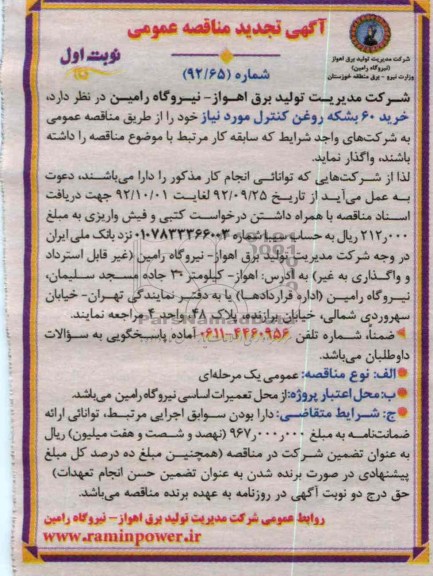 آگهی تجدید مناقصه عمومی
نوبت اول
شماره (۹۲/۶۵)
شرکت مدیریت تولید برق اهواز
(نیروگاه رامین)
وزارت نیرو - برق منطقه خوزستان
شرکت مدیریت تولید برق اهواز- نیروگاه رامین در نظر دارد،
خرید ۶۰ بشکه روغن کنترل مورد نیاز خود را از طریق مناقصه عمومی
به شرکت‌های واجد شرایط که سابقه کار مرتبط با موضوع مناقصه را داشته
باشند، واگذار نماید.
لذا از شرکت‌هایی که توانائی انجام کار مذکور را دارا می‌باشند، دعوت
به عمل می‌آید از تاریخ ۹۲/۰۹/۲۵ لغایت ۹۲/۱۰/۰۱ جهت دریافت
اسناد مناقصه با همراه داشتن درخواست کتبی و فیش واریزی به مبلغ
۲۱۲ر۰۰۰ ریال به حساب سیبا شماره ۰۱۰۷۸۳۳۳۶۶۰۰۳ نزد بانک ملی ایران
در وجه شرکت مدیریت تولید برق اهواز- نیروگاه رامین (غیر قابل استرداد
و واگذاری به غیر) به آدرس: اهواز- کیلومتر ۳۰ جاده مسجد سلیمان،
نیروگاه رامین (اداره قراردادها) یا به دفتر نمایندگی تهران- خیابان
سهروردی شمالی، خیابان برازنده، پلاک ۴۸، واحد ۴ مراجعه نمایند.
ضمناً، شماره تلفن ۴۴۶۰۹۵۶-۰۶۱۱ آماده پاسخگویی به سؤالات
داوطلبان می‌باشد.
الف: نوع مناقصه: عمومی یک مرحله‌ای
ب: محل اعتبار پروژه: از محل تعمیرات اساسی نیروگاه رامین می‌باشد.
ج: شرایط متقاضی: دارا بودن سوابق اجرایی مرتبط، توانائی ارائه
ضمانت‌نامه به مبلغ ۹۶۷ر۰۰۰ر۰۰۰ (نهصد و شصت و هفت میلیون) ریال
به عنوان تضمین شرکت در مناقصه (همچنین مبلغ ده درصد کل مبلغ
پیشنهادی در صورت برنده شدن به عنوان تضمین حسن انجام تعهدات)
حق درج دو نوبت آگهی در روزنامه به عهده برنده مناقصه می‌باشد.
روابط عمومی شرکت مدیریت تولید برق اهواز- نیروگاه رامین
www.raminpower.ir